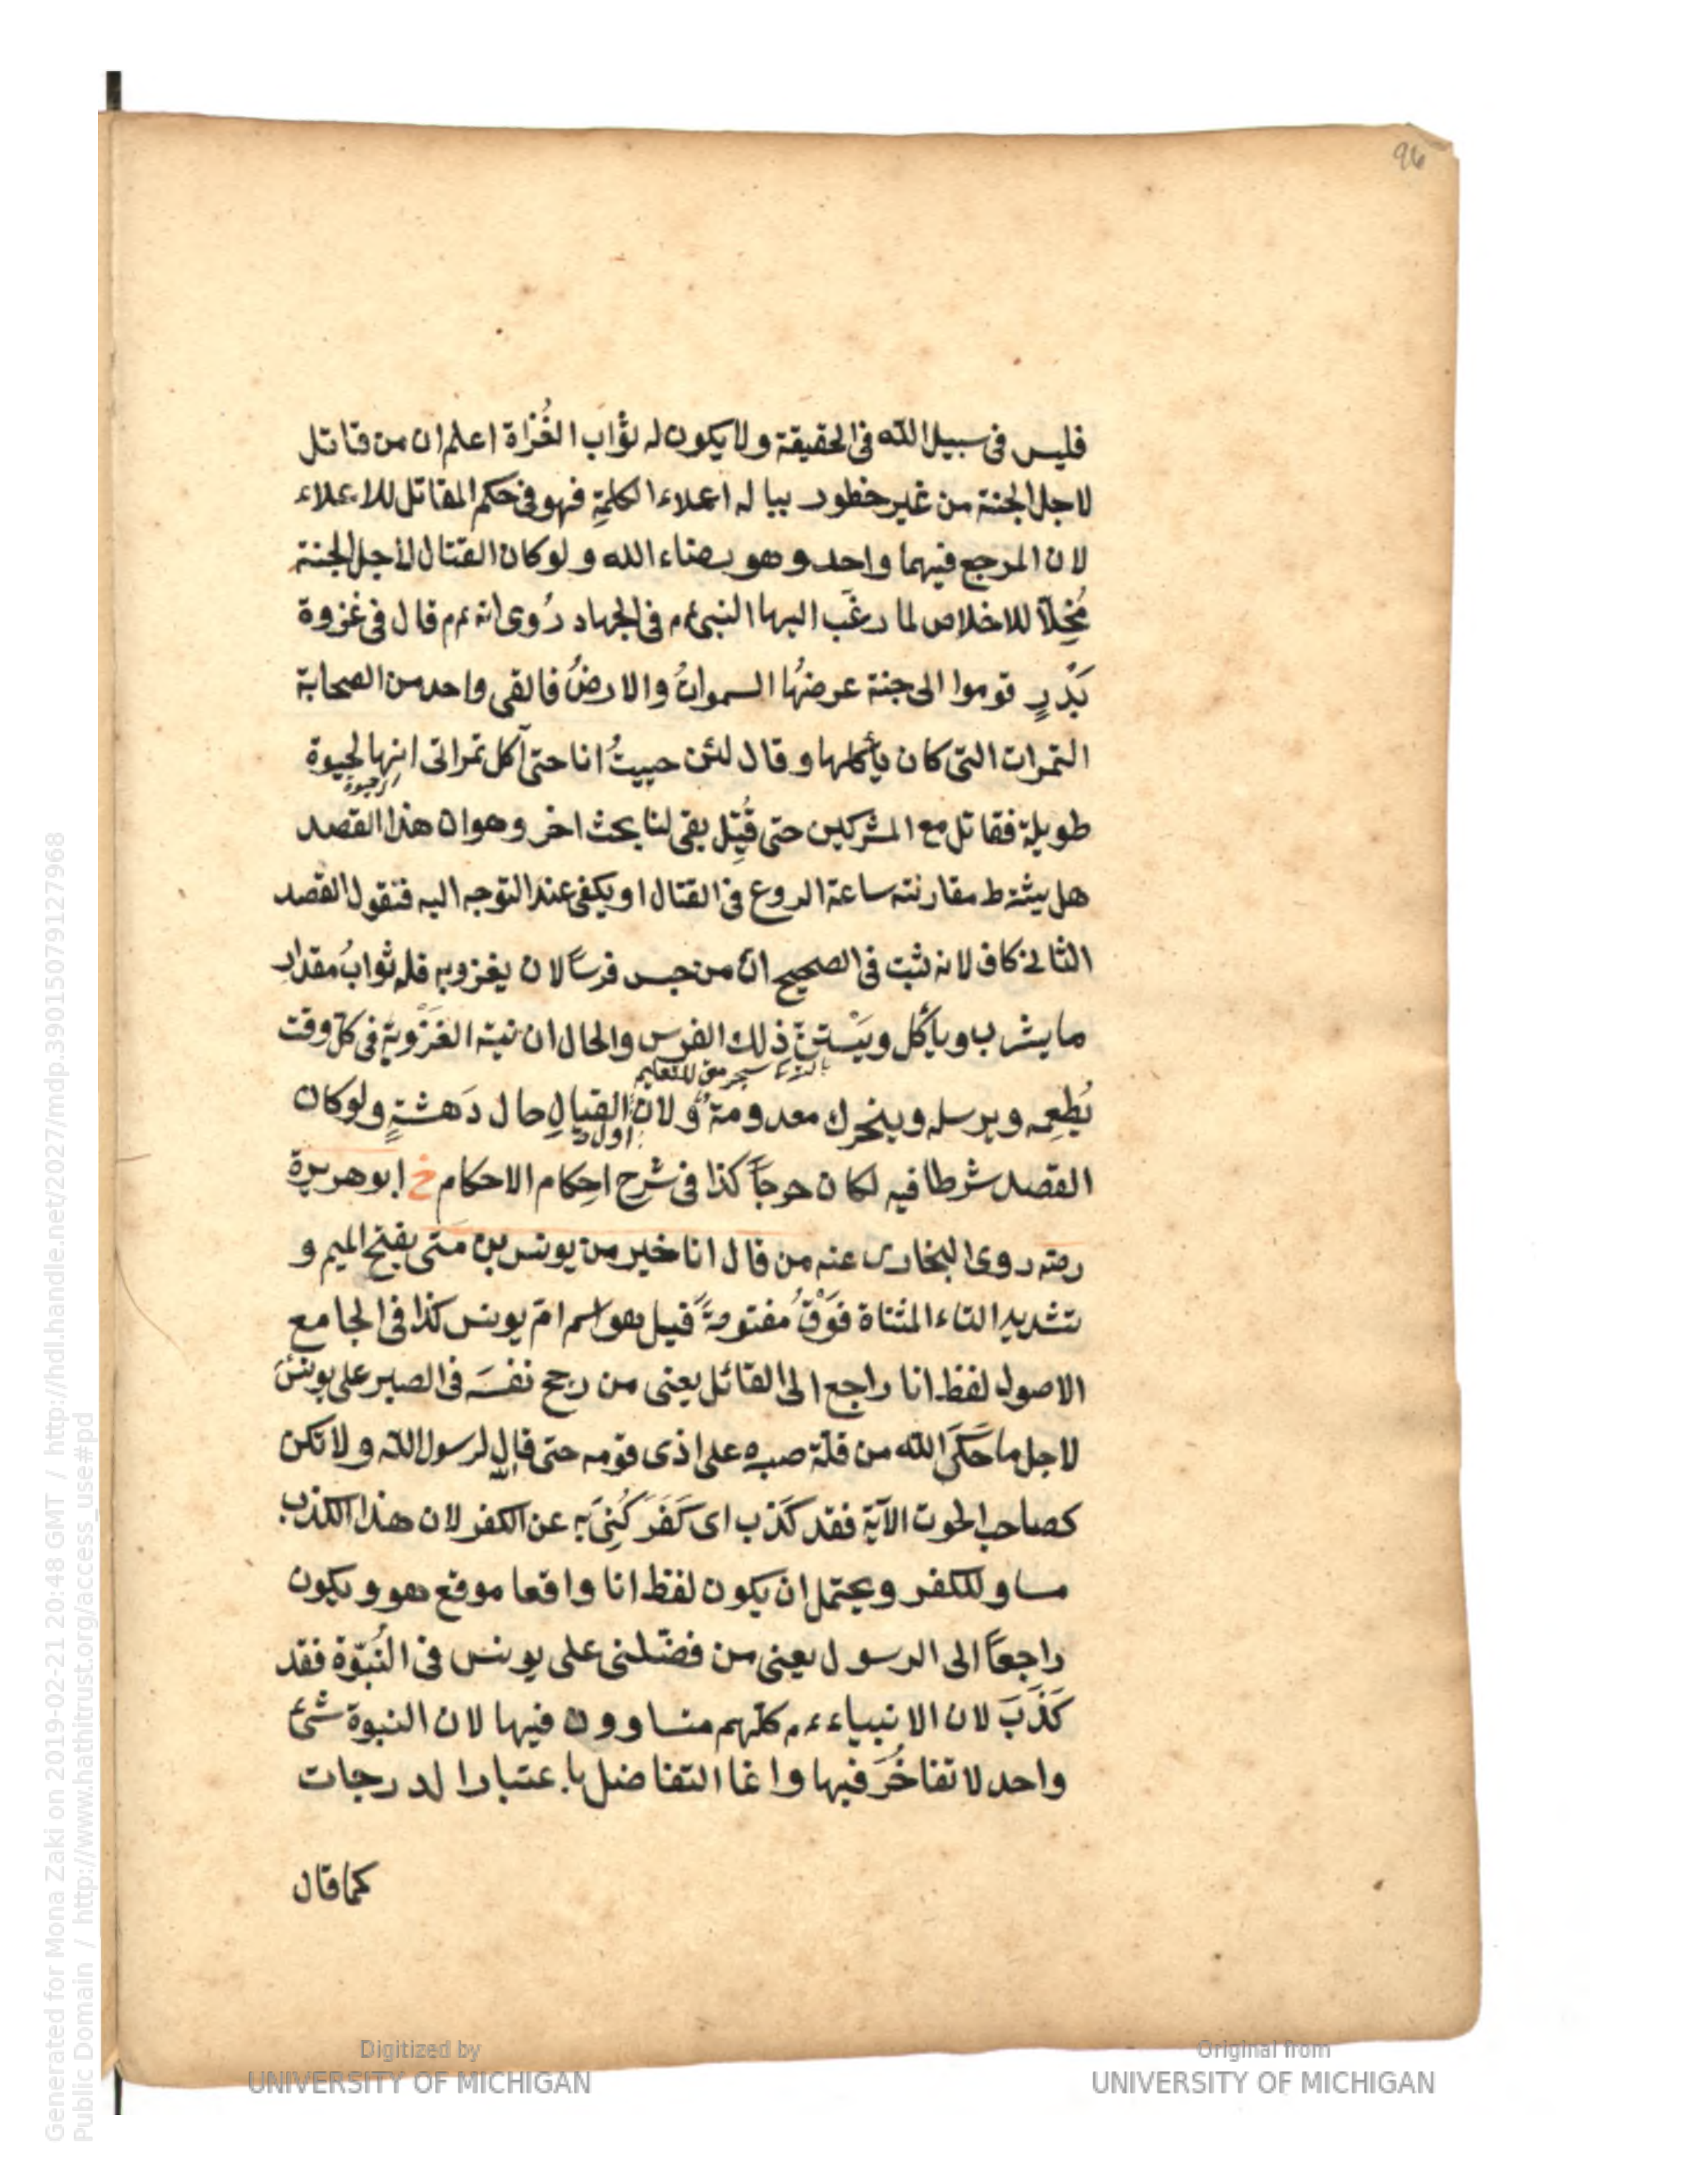 96
فليس فى سبيل الله فى الحقيقة ولا يكون له ثواب الغُزاة اعلم ان من قاتل
لاجل الجنة من غير خطور بباله اعلاء الكلمةِ فهو فى حكم المقاتل للاعلاء
لان المرجع فيهما واحد وهو رضاء الله ولو كان القتال لاجل الجنة
مُخِلاً للاخلاص لما رغَّب اليها النبى عم فى الجهاد رُوى انه عم قال فى غزوة
بَدْرٍ قوموا الى جنة عرضُها السمواتُ والارضُ فالقى واحد من الصحابة
التمرات التى كان يأكلها وقال لئن حييتُ انا حتى آكل تمراتى انها لحيوة
طويلة فقاتل مع المشركين حتى قُتِل بقى لنا بحث اخر وهو ان هذا القصد
هل يشترط مقارنته ساعة الروع فى القتال او يكفى عند التوجه اليه فنقول القصد
الثانى كاف لانه ثبت فى الصحيح انّ من حبس فرسًا لان يغزو به فله ثوابُ مقدار
ما يشرب ويأكل ويَسْتنّ ذلك الفرس والحال ان نية الغَزْو به فى كلّ وقت
يُطعِمه ويرسله وينحرك معدومة ولان القتال حال دَهشةٍ ولو كان
القصد شرطا فيه لكان حرجاً كذا فى شرح احكام الاحكام خ ابو هريرة
رضه روى البخارى عنه من قال انا خير من يونس بن متى بفتح الميم و
تشديد التاء المثناة فَوْقُ مفتوحةً قيل هو اسم امّ يونس كذا فى الجامع
الاصول لفظ انا راجع الى القائل يعنى من رجح نفسَه فى الصبر على يونس
لاجل ما حَكَى الله من قلّة صبره على اذى قومه حتى قال لرسول الله ولا تكن
كصاحب الحوت الآية فقد كَذَب اى كَفَرَ كُنِىَ به عن الكفر لان هذا الكذب
مساو للكفر ويحتمل ان يكون لفظ انا واقعا موقع هو ويكون
راجعاً الى الرسول يعنى من فضّلنى على يونس فى النُبوّة فقد
كَذَبَ لان الانبياء عم كلّهم متساوون فيها لان النبوة شئ
واحد لا تفاخُرَ فيها وانما التفاضل باعتبار الدرجات
كما قال
Generated for Mona Zaki on 2019-02-21 20:48 GMT / http://hdl.handle.net/2027/mdp.39015079127968
Public Domain / http://www.hathitrust.org/access_use#pd
Digitized by
UNIVERSITY OF MICHIGAN
Original from
UNIVERSITY OF MICHIGAN